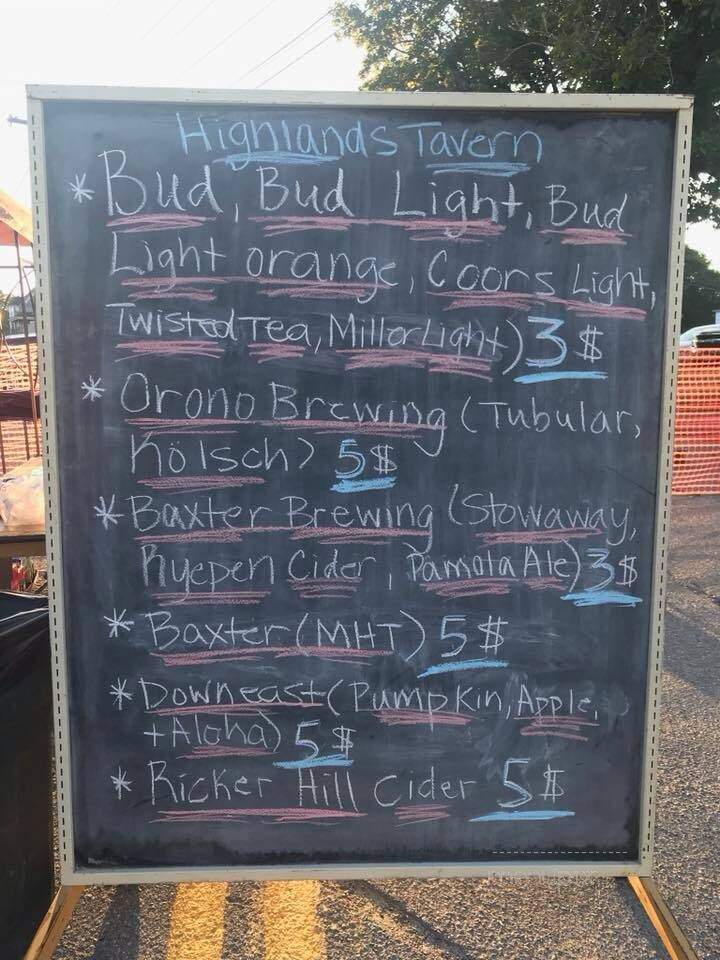 Highlands Tavern
* Bud, Bud Light, Bud
Light orange, Coors Light,
Twisted Tea, Miller Light) 3$
* Orono Brewing (Tubular,
Kölsch) 5$
* Baxter Brewing (Stowaway,
Ryepen Cider, Pamola Ale) 3$
* Baxter (MHT) 5$
* Downeast (Pumpkin, Apple,
+ Aloha) 5$
* Ricker Hill Cider 5$